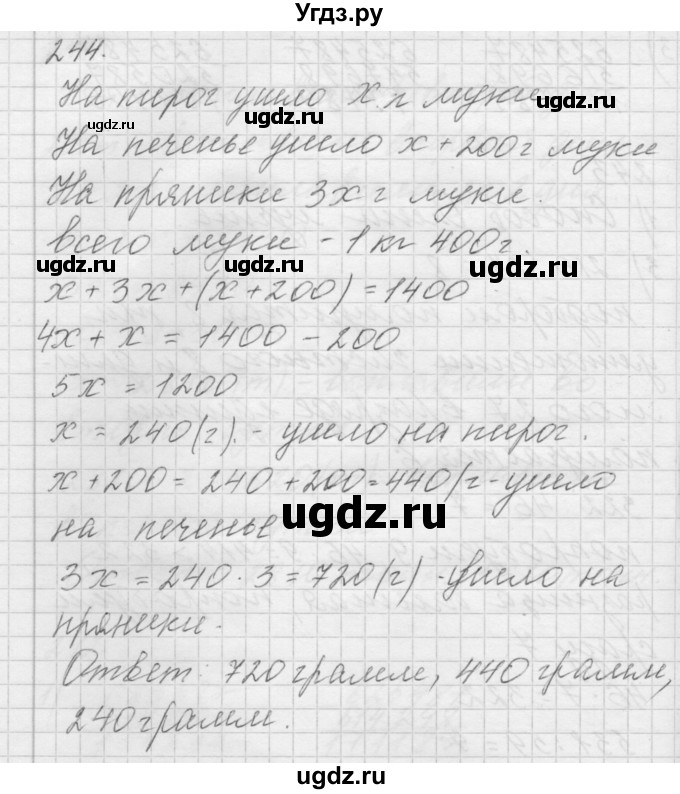 Угдз.ру
244.
На пирог ушло x г муки
ugdz.ru
ugdz.ru
ugdz.ru
На печенье ушло x + 200 г муки
На пряники 3x г муки.
всего муки - 1 кг 400 г.
ugdz.ru ugdz.ru ugdz.ru
x + 3x + (x + 200) = 1400
4x + x = 1400 - 200
5x = 1200
x = 240 (г). - ушло на пирог.
x + 200 = 240 + 200 = 440 (г - ушло
на печенье
ugdz.ru
3x = 240 · 3 = 720 (г) - ушло на
пряники.
Ответ: 720 грамм, 440 грамм,
240 грамм.
ugdz.ru